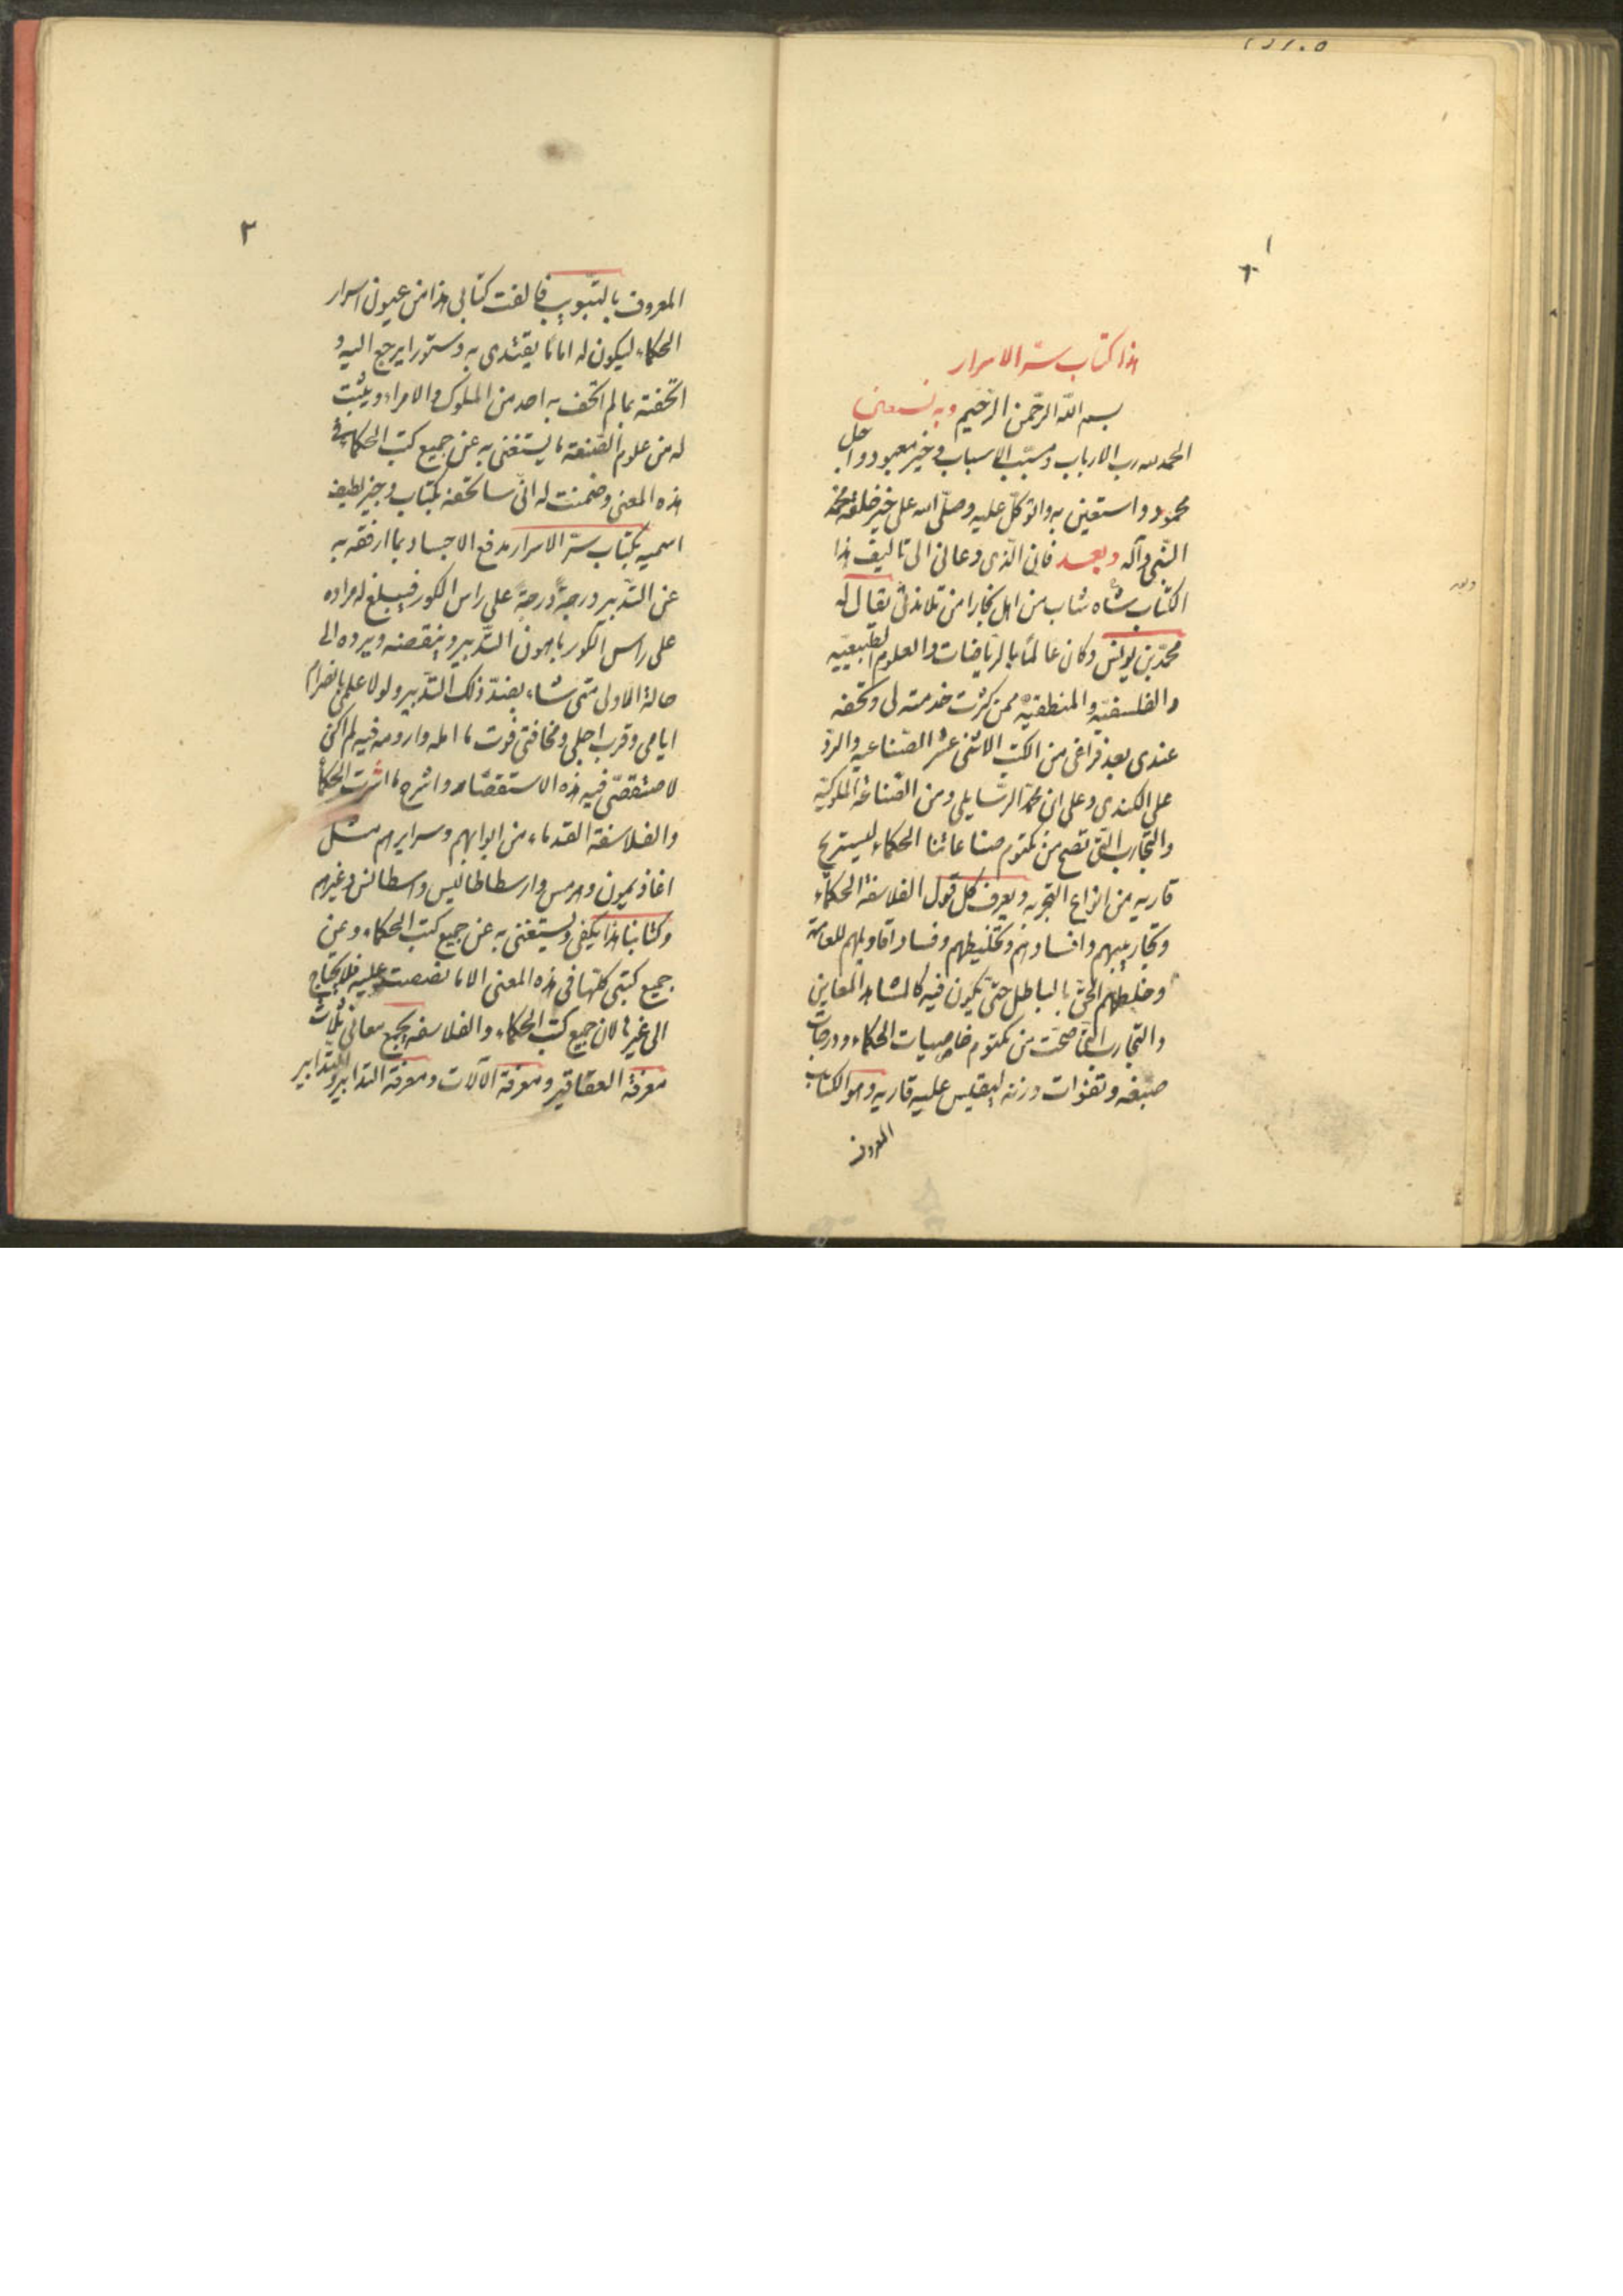 ١
هذا كتاب سرّ الاسرار
بسم الله الرّحمن الرّحيم وبه نستعين
الحمد لله رب الارباب ومسبّب الاسباب وخير معبود واجل
محمود واستعين به واتوكّل عليه وصلّى الله على خير خلقه محمّد
النّبى وآله وبعد فان الّذى دعانى الى تاليف هذا
الكتاب شاه شاب من اهل بخارا من تلامذتى يقال له
محمّد بن يونس وكان عالمًا بالرّياضات والعلوم الطّبيعيّه
والفلسفيّه والمنطقيّه ممن كثرت خدمته لى وتحفه
عندى بعد فراغى من الكتب الاثنى عشر الصّناعيه والردّ
على الكندى وعلى ابى محمّد الرّسايلى ومن الصّناعة الملوكيّه
والتجارب التّى تصح من مكتوم صناعاتنا الحكماء ليستريح
قاريه من انواع التجربه ويعرف كل قول الفلاسفة الحكماء
وتجاريبهم وافسادهم وتخليطهم وفساد اقاويلهم للعامّة
وخلطهم الحقّ بالباطل حتّى يكون فيه كالمشاهد المعاين
والتجارب التّى صحّت من مكتوم خاصيات الحكماء ودرجات
صبغه وزنه ليقيس عليه قاريه وهو الكتاب
المعروف
٢
المعروف بالتبويب فالفت كتابى هذا من عيون اسرار
الحكماء ليكون له امامًا يقتدى به ودستورا يرجع اليه و
اتحفته بما لم اتحف به احد من الملوك والامراء ويثبت
له من علوم الصّنعة ما يستغنى به عن جميع كتب الحكماء فى
هذه المعنى وضمنت له انّى ساتحفه بكتاب وجيز لطيف
اسميه بكتاب سرّ الاسرار مدفع الاجساد بما ارفقه به
عن التّدبير درجةً درجةً على راس الكور فيبلغ له مراده
على راس الكور باهون التّدبير وينقصنه ويرده الى
حالة الاولى متى شاء بضدّ ذلك التّدبير ولولا علمى بانصرام
ايامى وقرب اجلى ومخافتى فوت ما امله وارومه فيه لم اكن
لاستقصى فيه هذه الاستقصاء واشرح ما اشرت الحكماء
والفلاسفة القدماء من ابوابهم وسرايرهم مثل
اغاذيمون وهرمس وارسطاطاليس واسطانس وغيرهم
وكتابنا هذا يكفى ويستغنى به عن جميع كتب الحكماء وعن
جميع كتبى كلّها فى هذه المعنى الا ما نصصت عليه فلا يحتاج
الى غيرها لان جميع كتب الحكماء والفلاسفه يجمع معانى ثلاث
معرفة العقاقير ومعرفة الآلات ومعرفة التدابير والتّدابير